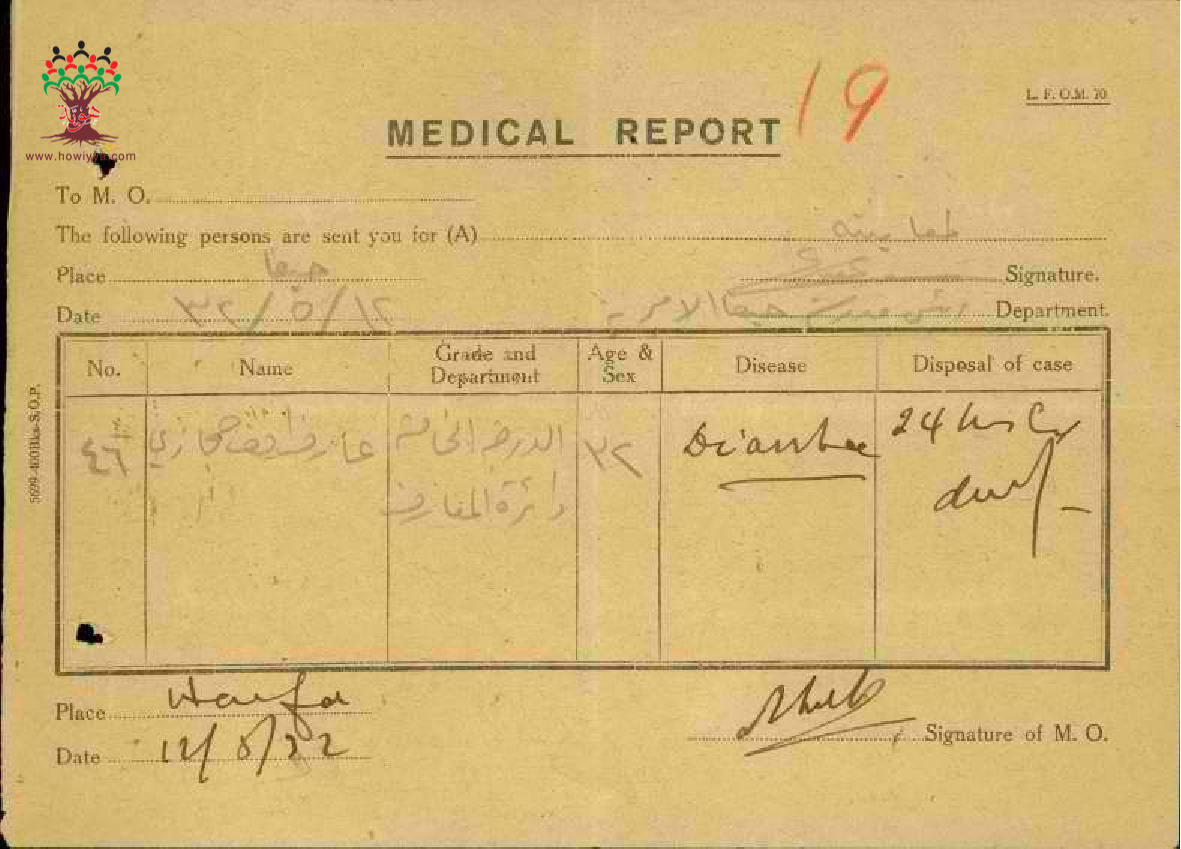 هوية
www.howiyya.com
19
L. F. O.M. 70
MEDICAL REPORT
To M. O.
The following persons are sent you for (A) لمعاينته
Place حيفا Signature.
Date ١٢/٥/٣٢ مدرسة حيفا الاميرية Department.
No. Name Grade and Department Age & Sex Disease Disposal of case
٤٦ عارف حجازي الدرجة الخامسة ٣٢ Diarrhea 24 hrs
دائرة المعارف duty
Place Haifa
Date 12/5/32 Signature of M. O.